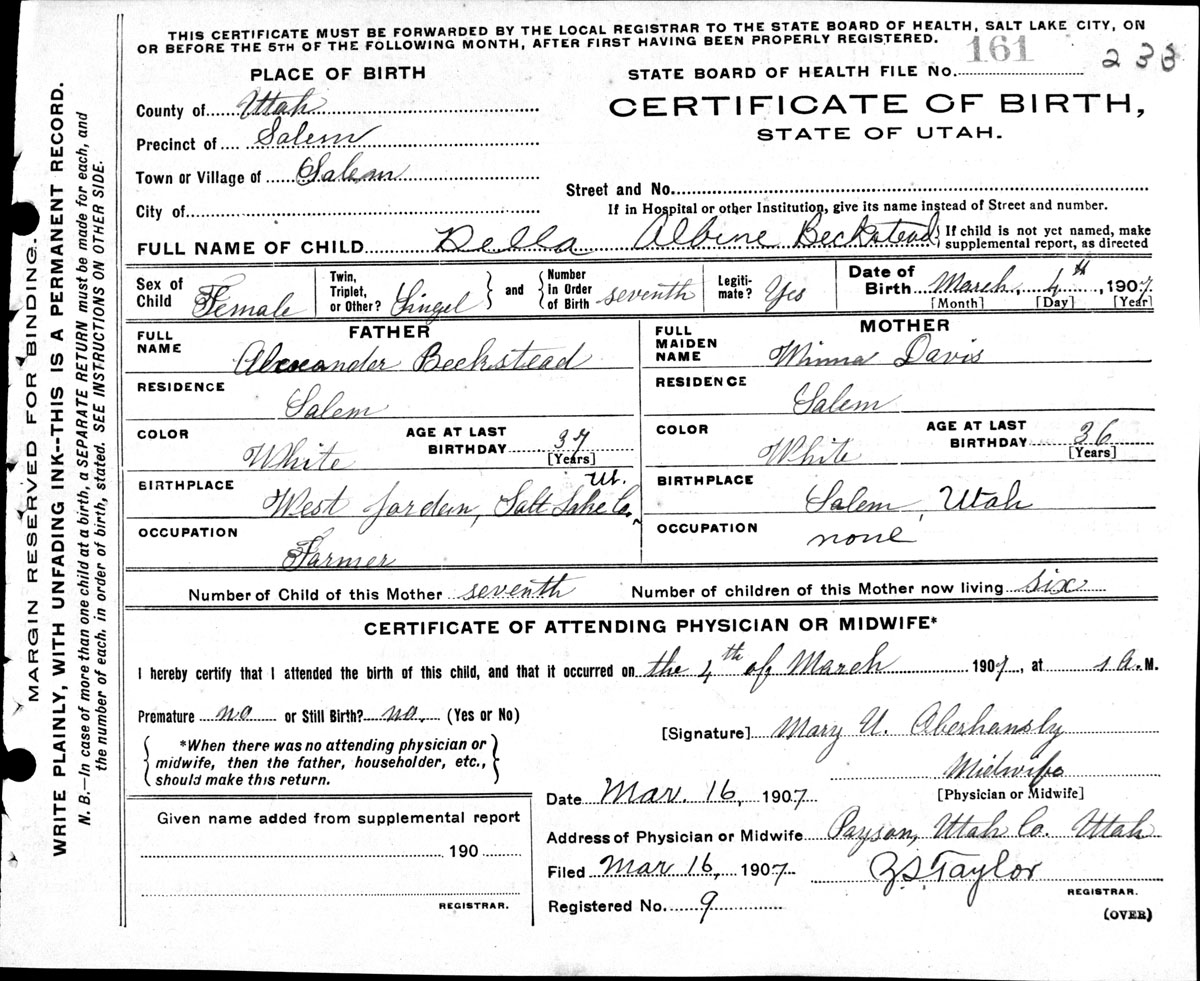 THIS CERTIFICATE MUST BE FORWARDED BY THE LOCAL REGISTRAR TO THE STATE BOARD OF HEALTH, SALT LAKE CITY, ON
OR BEFORE THE 5TH OF THE FOLLOWING MONTH, AFTER FIRST HAVING BEEN PROPERLY REGISTERED.
161 233
PLACE OF BIRTH
STATE BOARD OF HEALTH FILE No.
County of Utah
CERTIFICATE OF BIRTH,
STATE OF UTAH.
Precinct of Salem
Town or Village of Salem
Street and No.
City of
If in Hospital or other Institution, give its name instead of Street and number.
FULL NAME OF CHILD Della Albine Beckstead
If child is not yet named, make
supplemental report, as directed
Sex of Child Female
Twin, Triplet, or Other? Singel
and
Number In Order of Birth seventh
Legiti-mate? Yes
Date of Birth March, 4th, 1907.
[Month] [Day] [Year]
FATHER
FULL NAME Alexander Beckstead
RESIDENCE
Salem
COLOR White
AGE AT LAST BIRTHDAY 37
[Years]
BIRTHPLACE
West Jordan, Salt Lake Co. Ut.
OCCUPATION
Farmer
MOTHER
FULL MAIDEN NAME Minna Davis
RESIDENCE
Salem
COLOR White
AGE AT LAST BIRTHDAY 36
[Years]
BIRTHPLACE
Salem, Utah
OCCUPATION
none
Number of Child of this Mother seventh
Number of children of this Mother now living six
CERTIFICATE OF ATTENDING PHYSICIAN OR MIDWIFE*
I hereby certify that I attended the birth of this child, and that it occurred on the 4th of March 1907, at 1 A.M.
Premature no or Still Birth? no. (Yes or No)
[Signature] Mary U. Oberhansly
*When there was no attending physician or
midwife, then the father, householder, etc.,
should make this return.
Midwife
[Physician or Midwife]
Date Mar. 16, 1907
Given name added from supplemental report
190
REGISTRAR.
Address of Physician or Midwife Payson, Utah Co. Utah
Filed Mar 16, 1907. Z S Taylor
REGISTRAR.
Registered No. 9
(OVER)
MARGIN RESERVED FOR BINDING.
WRITE PLAINLY, WITH UNFADING INK--THIS IS A PERMANENT RECORD.
N. B.—In case of more than one child at a birth, a SEPARATE RETURN must be made for each, and
the number of each, in order of birth, stated. SEE INSTRUCTIONS ON OTHER SIDE.